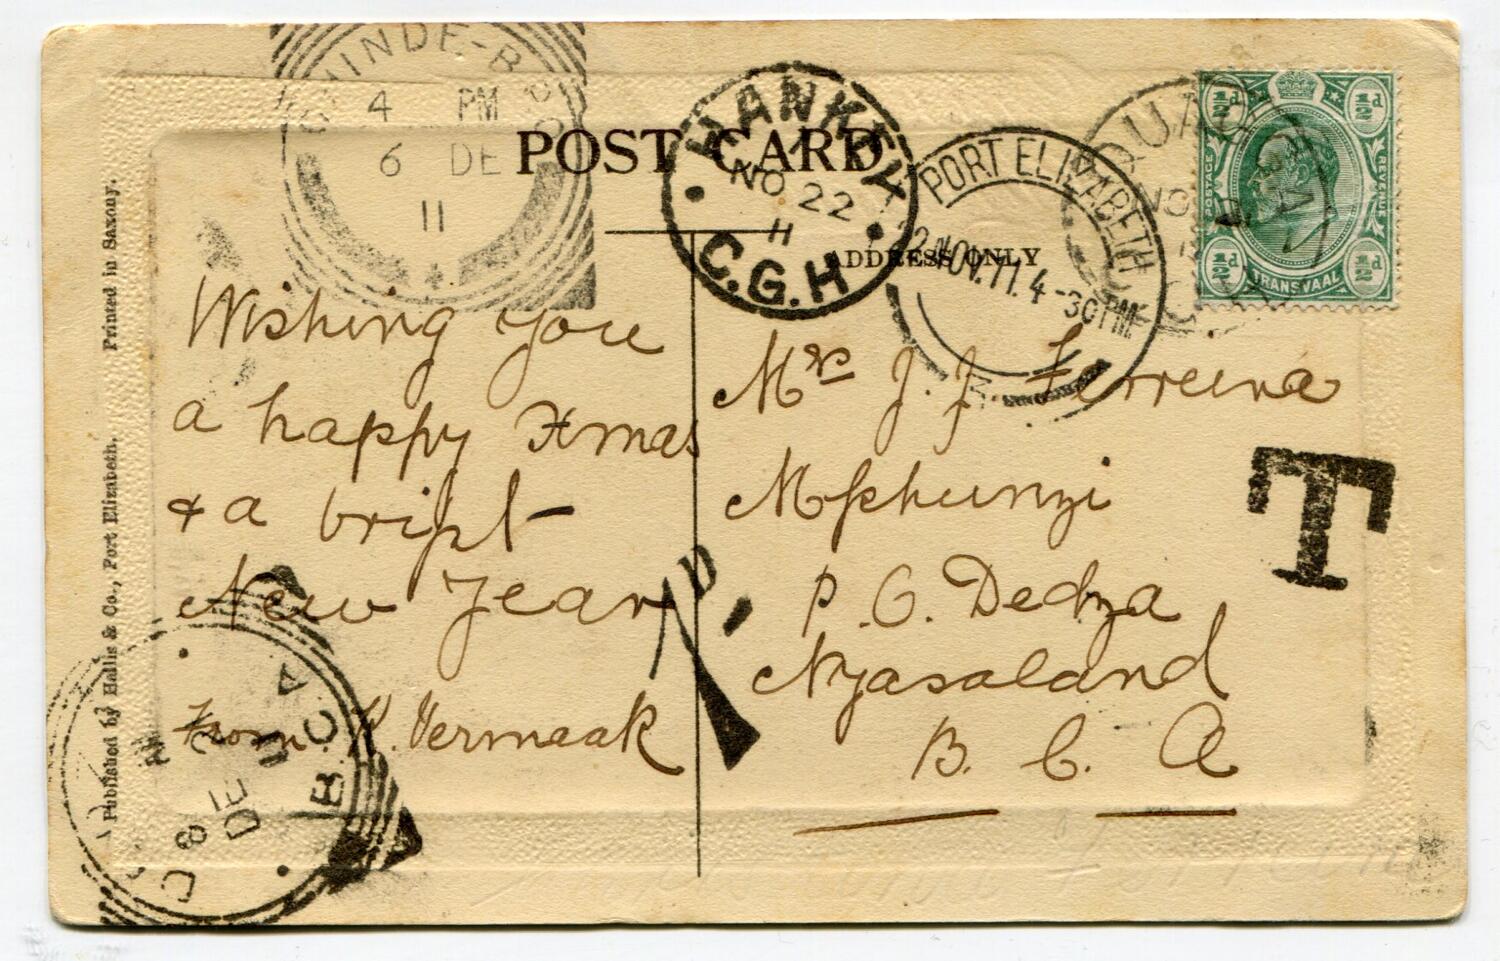 POST CARD
ADDRESS ONLY
CHINDE-B
4 PM
6 DE
11
HANKEY
1
NO 22
11
C.G.H
PORT ELIZABETH
NOV.11.4-30PM
QUA
NO
½d ½d
POSTAGE REVENUE
½d ½d
TRANSVAAL
Wishing you
a happy Xmas
& a bright
New Year
From K. Vermaak
Mrs J. J. Ferreira
Mphunzi
P.O. Dedza
Nyasaland
B. C. A
T
1 D.
B.C.A
DE
8
Published by Hallis & Co., Port Elizabeth. Printed in Saxony.